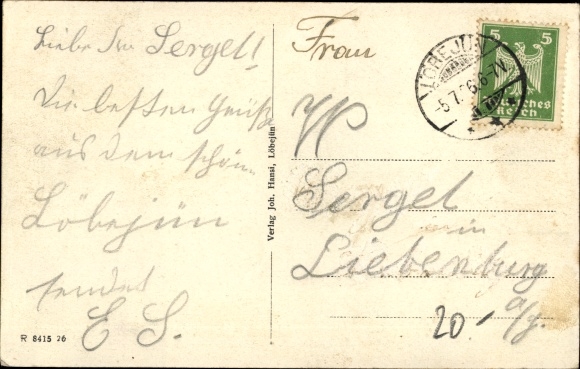 Liebe Fr. Sergel!
Die besten Grüße
aus dem schön.
Löbejün
sendet
E. S.
R 8415 26
Verlag Joh. Hansi, Löbejün
Frau
Sergel
in
Liebenburg
a/H.
20.-
LÖBEJÜN
-5.7.26.6-7V.
5 5
Deutsches
Reich